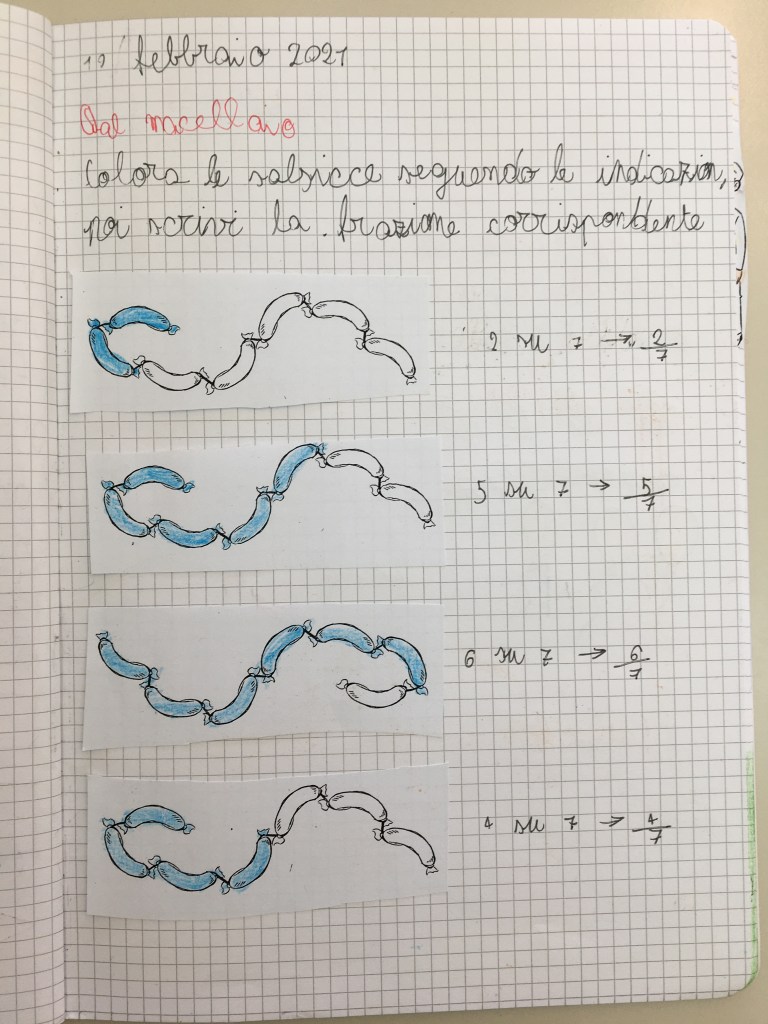 19 febbraio 2021
Dal macellaio
Colora le salsicce seguendo le indicazioni,
poi scrivi la frazione corrispondente
2 su 7 → 2/7
5 su 7 → 5/7
6 su 7 → 6/7
4 su 7 → 4/7